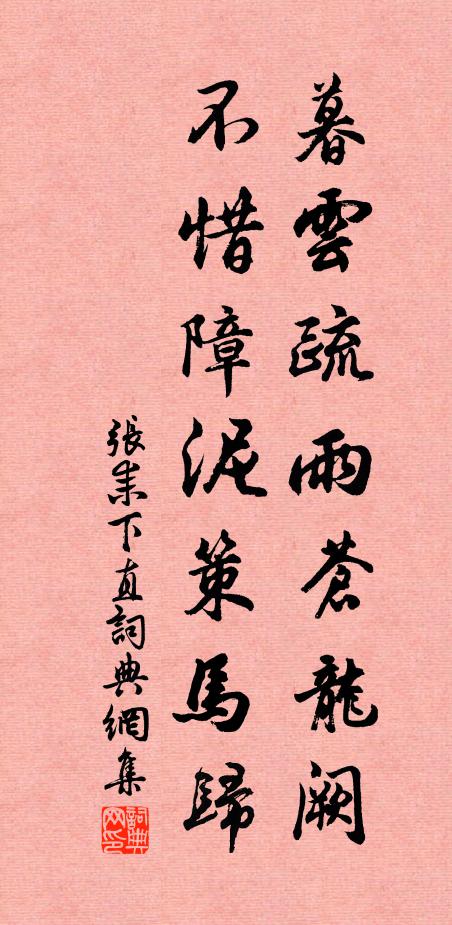 暮雲疏雨蒼龍闕
不惜障泥策馬歸
張耒下直詞典網集
詞典網印